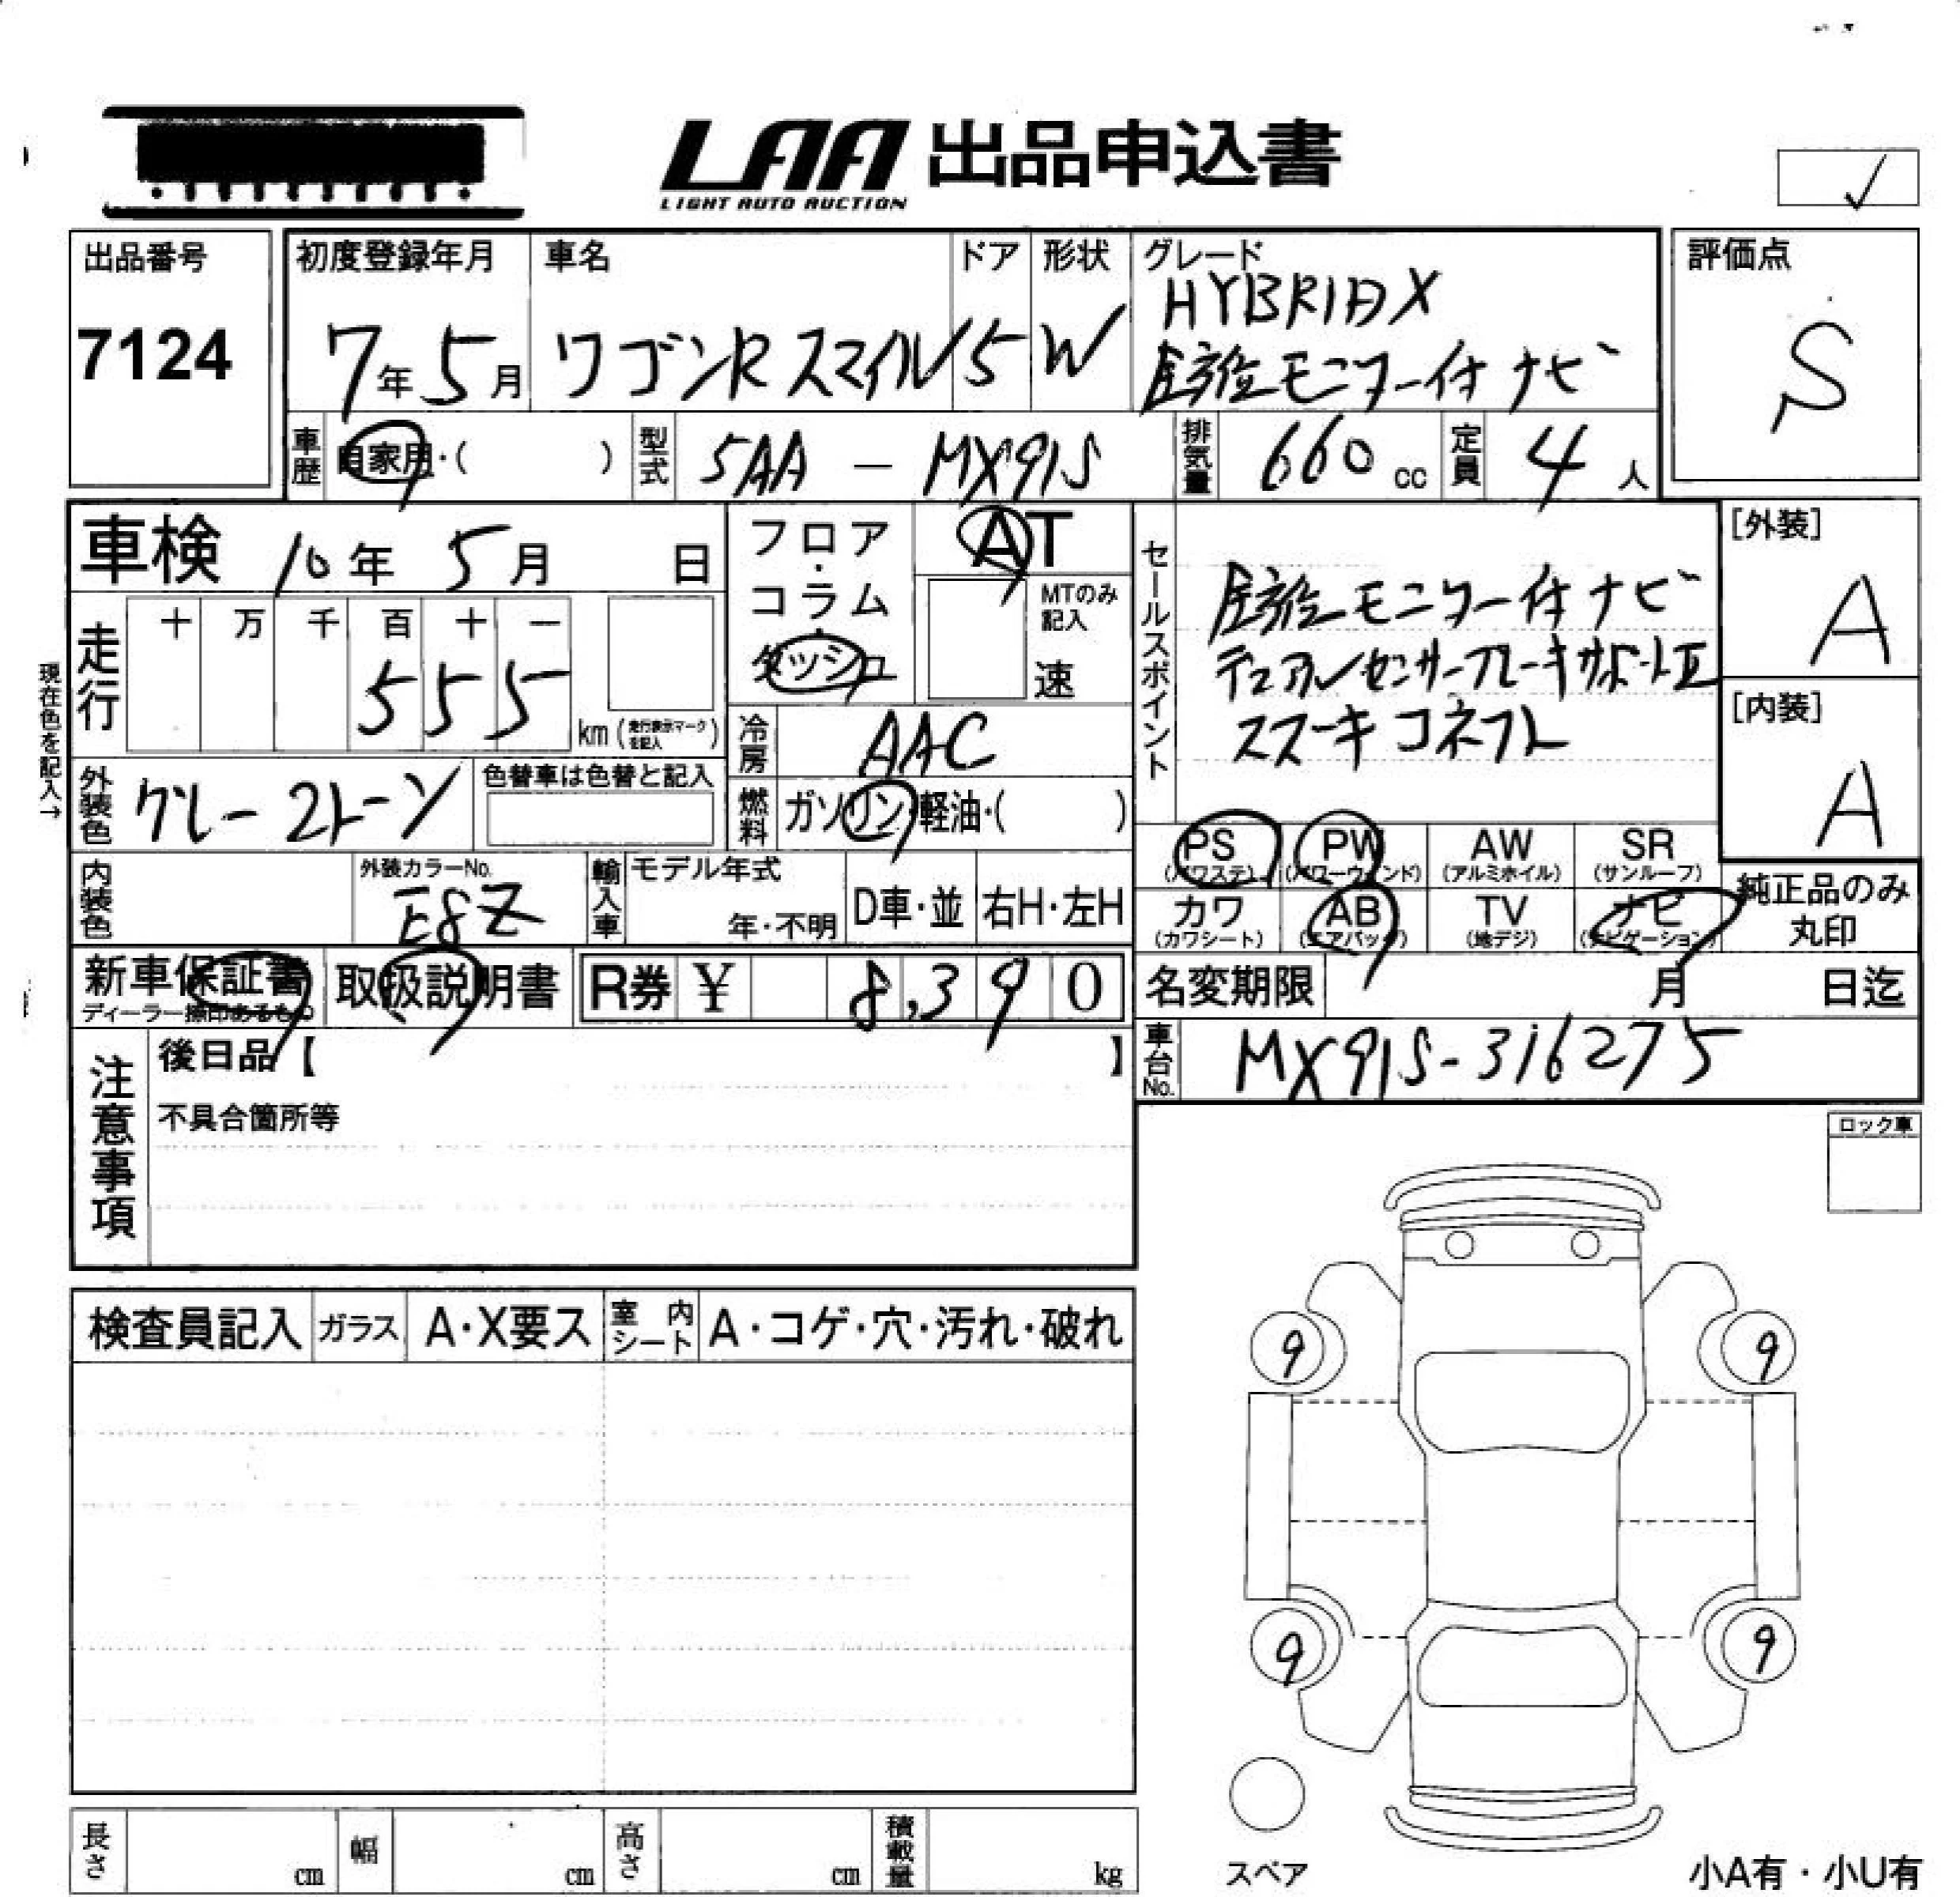 LAA 出品申込書
LIGHT AUTO AUCTION
✓
出品番号
7124
初度登録年月
7年5月
車名
ワゴンRスマイル
ドア
5
形状
W
グレード
HYBRID X
全方位モニター付ナビ
評価点
S
車歴
自家用・( )
型式
5AA － MX91S
排気量
660 cc
定員
4 人
車検 10年 5月 日
フロア・コラム・ダッシュ
AT
MTのみ記入
速
走行
十 万 千 百 十 一
5 5 5
km(走行表示マークを記入)
現在色を記入→
冷房
AAC
外装色
グレー2トーン
色替車は色替と記入
燃料
ガソリン・軽油・( )
セールスポイント
全方位モニター付ナビ
デュアルセンサーブレーキサポートⅡ
スズーキコネクト
[外装]
A
[内装]
A
内装色
外装カラーNo.
E8Z
輸入車
モデル年式
年・不明
D車・並
右H・左H
PS
(パワステ)
PW
(パワーウィンド)
AW
(アルミホイル)
SR
(サンルーフ)
カワ
(カワシート)
AB
(エアバッグ)
TV
(地デジ)
ナビ
(ナビゲーション)
純正品のみ
丸印
新車保証書
ディーラー捺印あるもの
取扱説明書
R券 ¥ 8,390
名変期限 月 日迄
車台No.
MX91S-316275
注意事項
後日品【 】
不具合箇所等
ロック車
検査員記入
ガラス
A・X要ス
室内シート
A・コゲ・穴・汚れ・破れ
9
9
9
9
スペア
長さ cm
幅 cm
高さ cm
積載量 kg
小A有・小U有